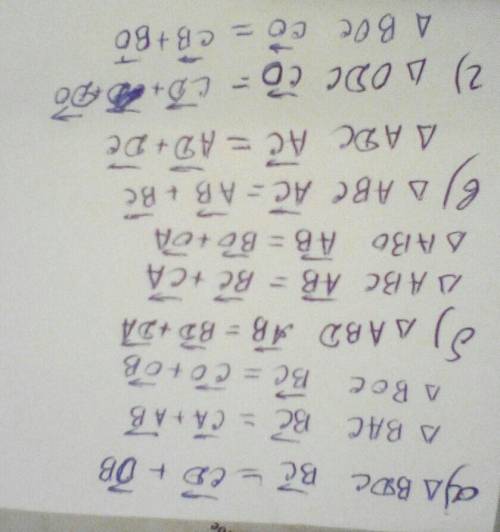 а) △ BDC  BC⃗ = CD⃗ + DB⃗
△ BAC  BC⃗ = CA⃗ + AB⃗
△ BOC  BC⃗ = CO⃗ + OB⃗
б) △ ABD  AB⃗ = BD⃗ + DA⃗
△ ABC  AB⃗ = BC⃗ + CA⃗
△ ABO  AB⃗ = BO⃗ + OA⃗
в) △ ABC  AC⃗ = AB⃗ + BC⃗
△ ADC  AC⃗ = AD⃗ + DC⃗
г) △ ODC  CO⃗ = CD⃗ + DO⃗
△ BOC  CO⃗ = CB⃗ + BO⃗